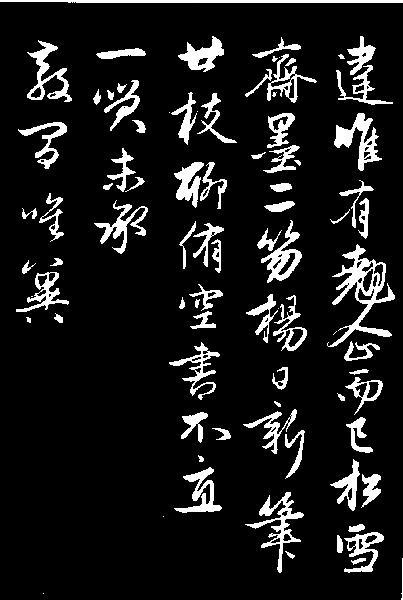 違唯有翹企而已松雪
齋墨二笏楊日新筆
廿枝聊侑空書不直
一咲未承
教間唯冀